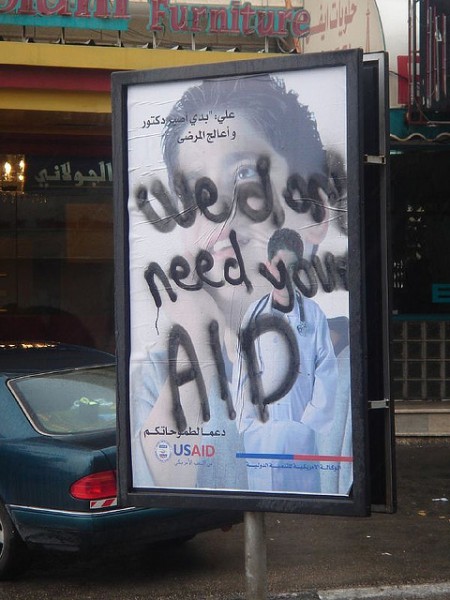 Furniture
حلويات
الجولاني
علي: "بدي أصير دكتور
و أعالج المرضى
We dont
need your
AID
دعما لطموحاتكم
USAID
من الشعب الأمريكي
الوكالة الأمريكية للتنمية الدولية